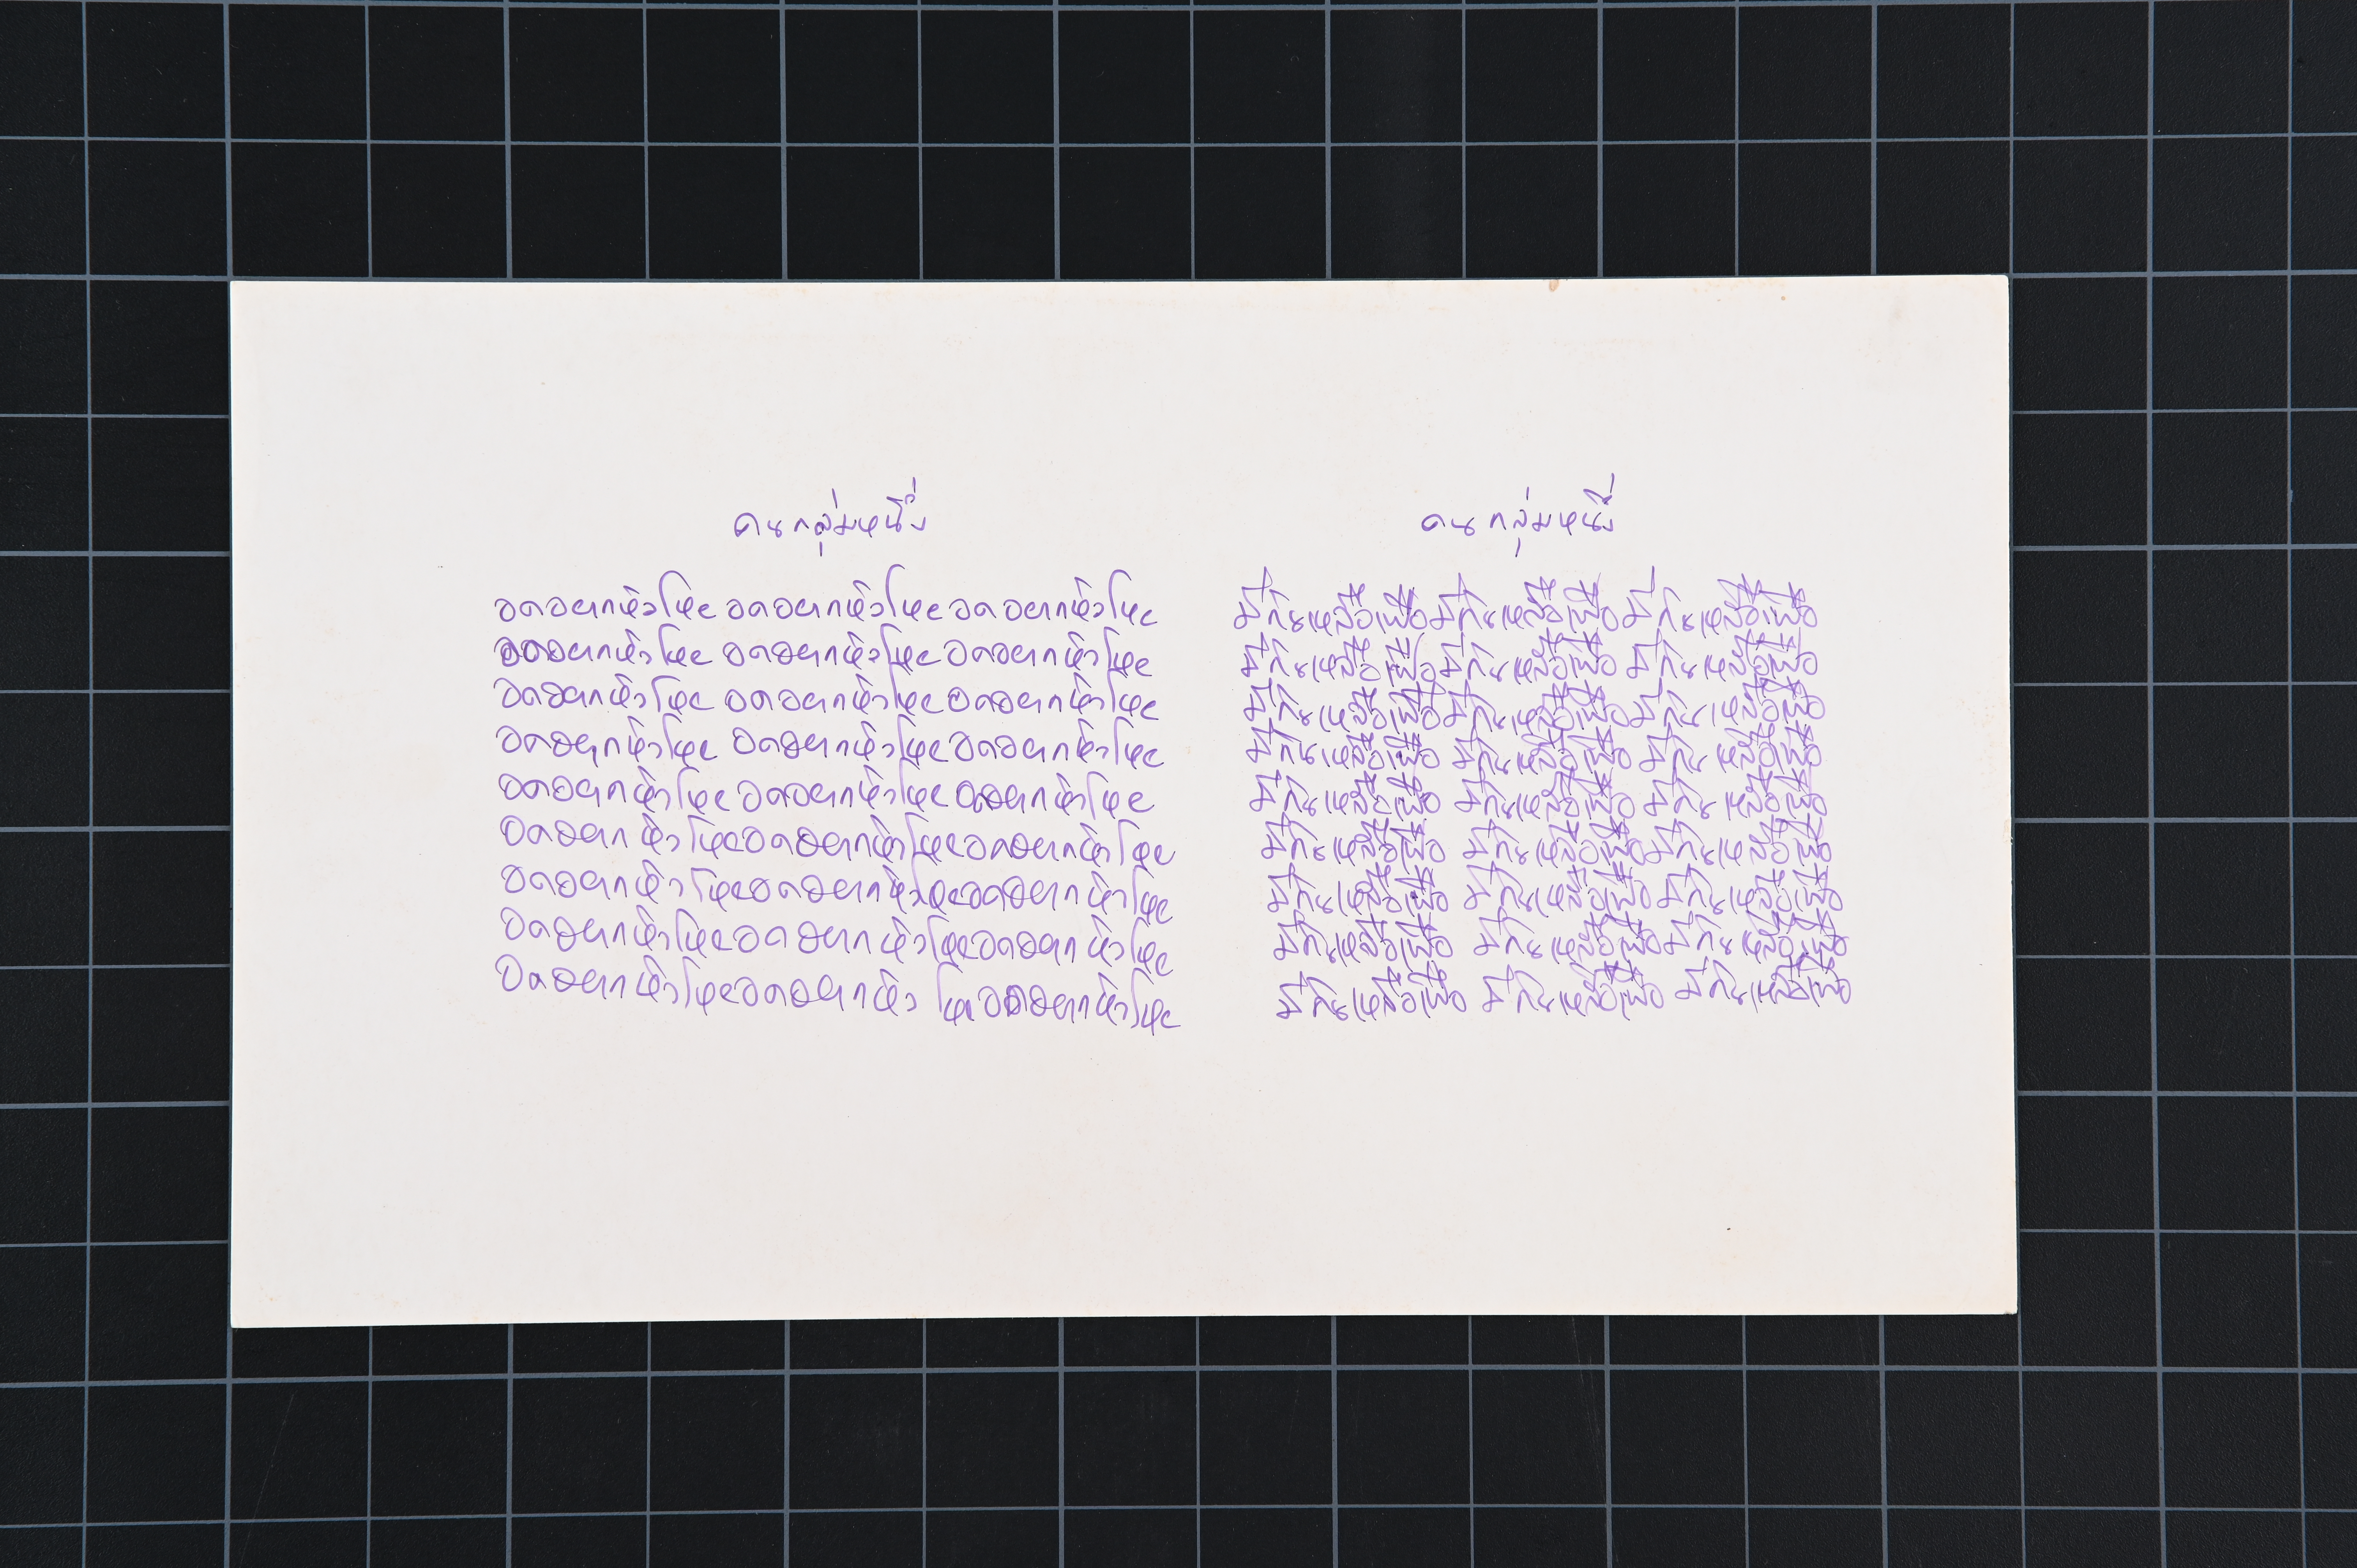 คนกลุ่มหนึ่ง
อดอยากหิวโหย อดอยากหิวโหย อดอยากหิวโหย
อดอยากหิวโหย อดอยากหิวโหย อดอยากหิวโหย
อดอยากหิวโหย อดอยากหิวโหย อดอยากหิวโหย
อดอยากหิวโหย อดอยากหิวโหย อดอยากหิวโหย
อดอยากหิวโหย อดอยากหิวโหย อดอยากหิวโหย
อดอยากหิวโหยอดอยากหิวโหยอดอยากหิวโหย
อดอยากหิวโหยอดอยากหิวโหยอดอยากหิวโหย
อดอยากหิวโหยอดอยากหิวโหยอดอยากหิวโหย
อดอยากหิวโหยอดอยากหิวโหยอดอยากหิวโหย
คนกลุ่มหนึ่ง
มีกินเหลือเฟือ มีกินเหลือเฟือ มีกินเหลือเฟือ
มีกินเหลือเฟือ มีกินเหลือเฟือ มีกินเหลือเฟือ
มีกินเหลือเฟือ มีกินเหลือเฟือ มีกินเหลือเฟือ
มีกินเหลือเฟือ มีกินเหลือเฟือ มีกินเหลือเฟือ
มีกินเหลือเฟือ มีกินเหลือเฟือ มีกินเหลือเฟือ
มีกินเหลือเฟือ มีกินเหลือเฟือ มีกินเหลือเฟือ
มีกินเหลือเฟือ มีกินเหลือเฟือ มีกินเหลือเฟือ
มีกินเหลือเฟือ มีกินเหลือเฟือ มีกินเหลือเฟือ
มีกินเหลือเฟือ มีกินเหลือเฟือ มีกินเหลือเฟือ